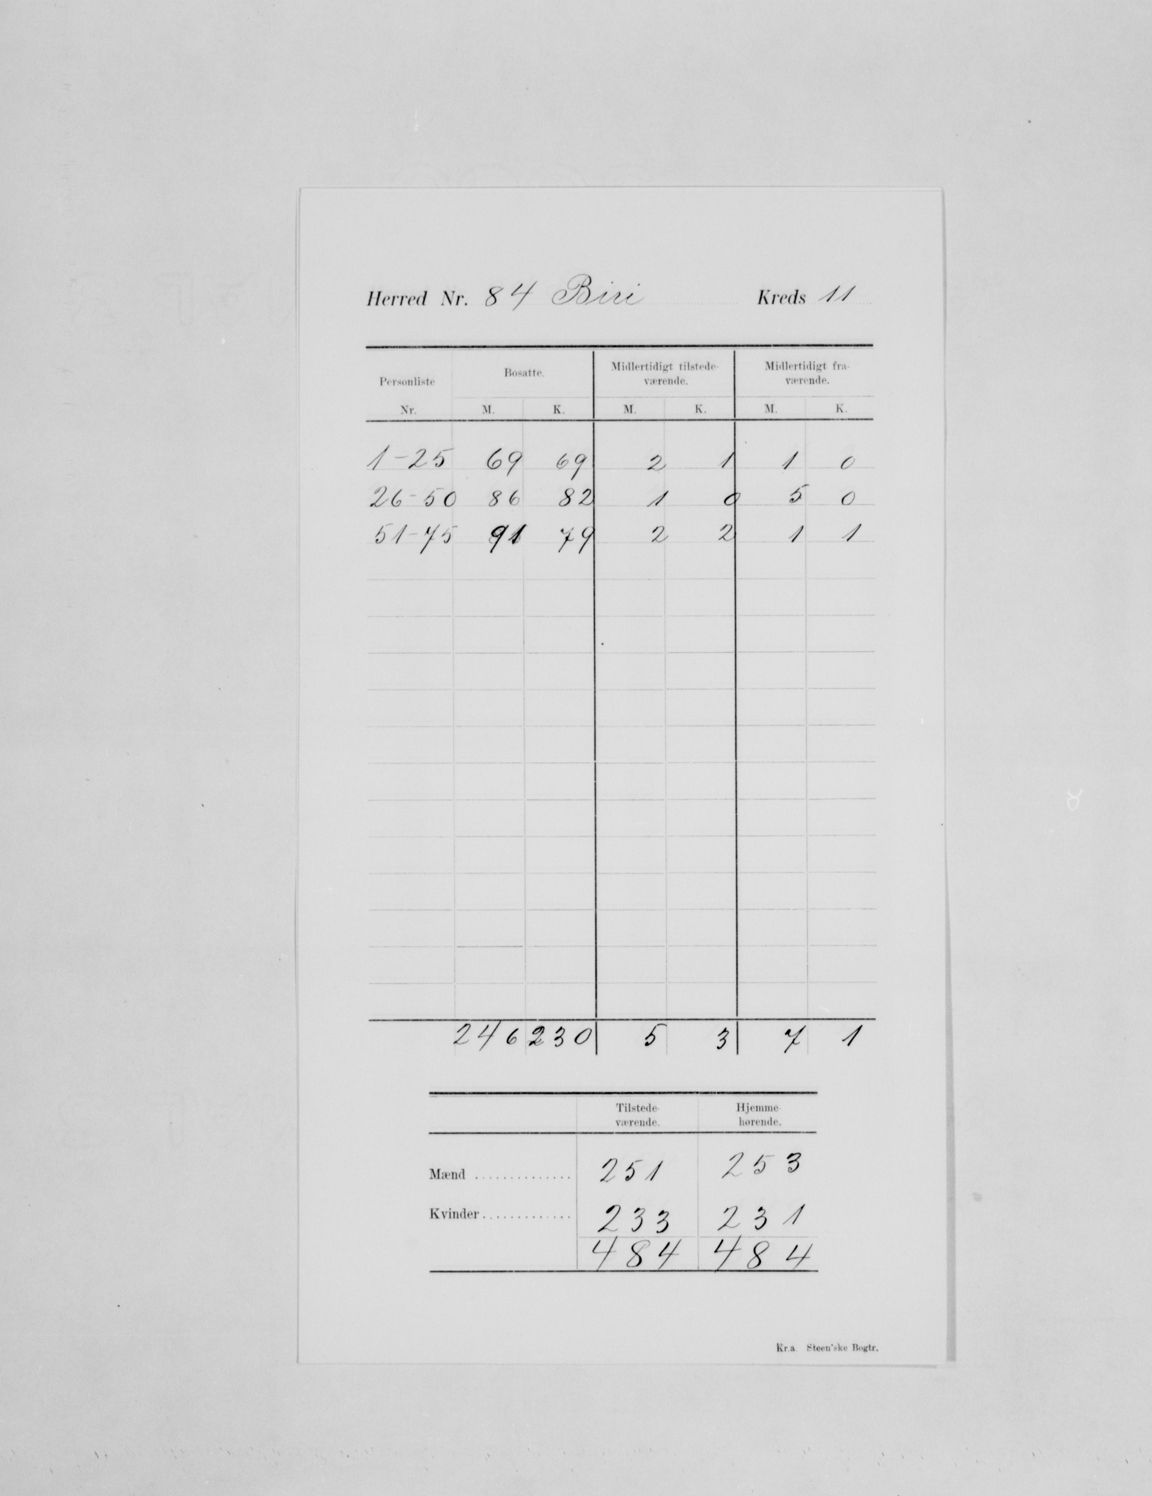 Herred Nr. 84 Biri Kreds 11
Personliste Bosatte. Midlertidigt tilstede- Midlertidigt fra-
værende. værende.
Nr. M. K. M. K. M. K.
1-25 69 69 2 1 1 0
26-50 86 82 1 0 5 0
51-75 91 79 2 2 1 1
246 230 5 3 7 1
Tilstede- Hjemme-
værende. hørende.
Mænd .............. 251 253
Kvinder ............. 233 231
484 484
Kr.a Steen'ske Bogtr.